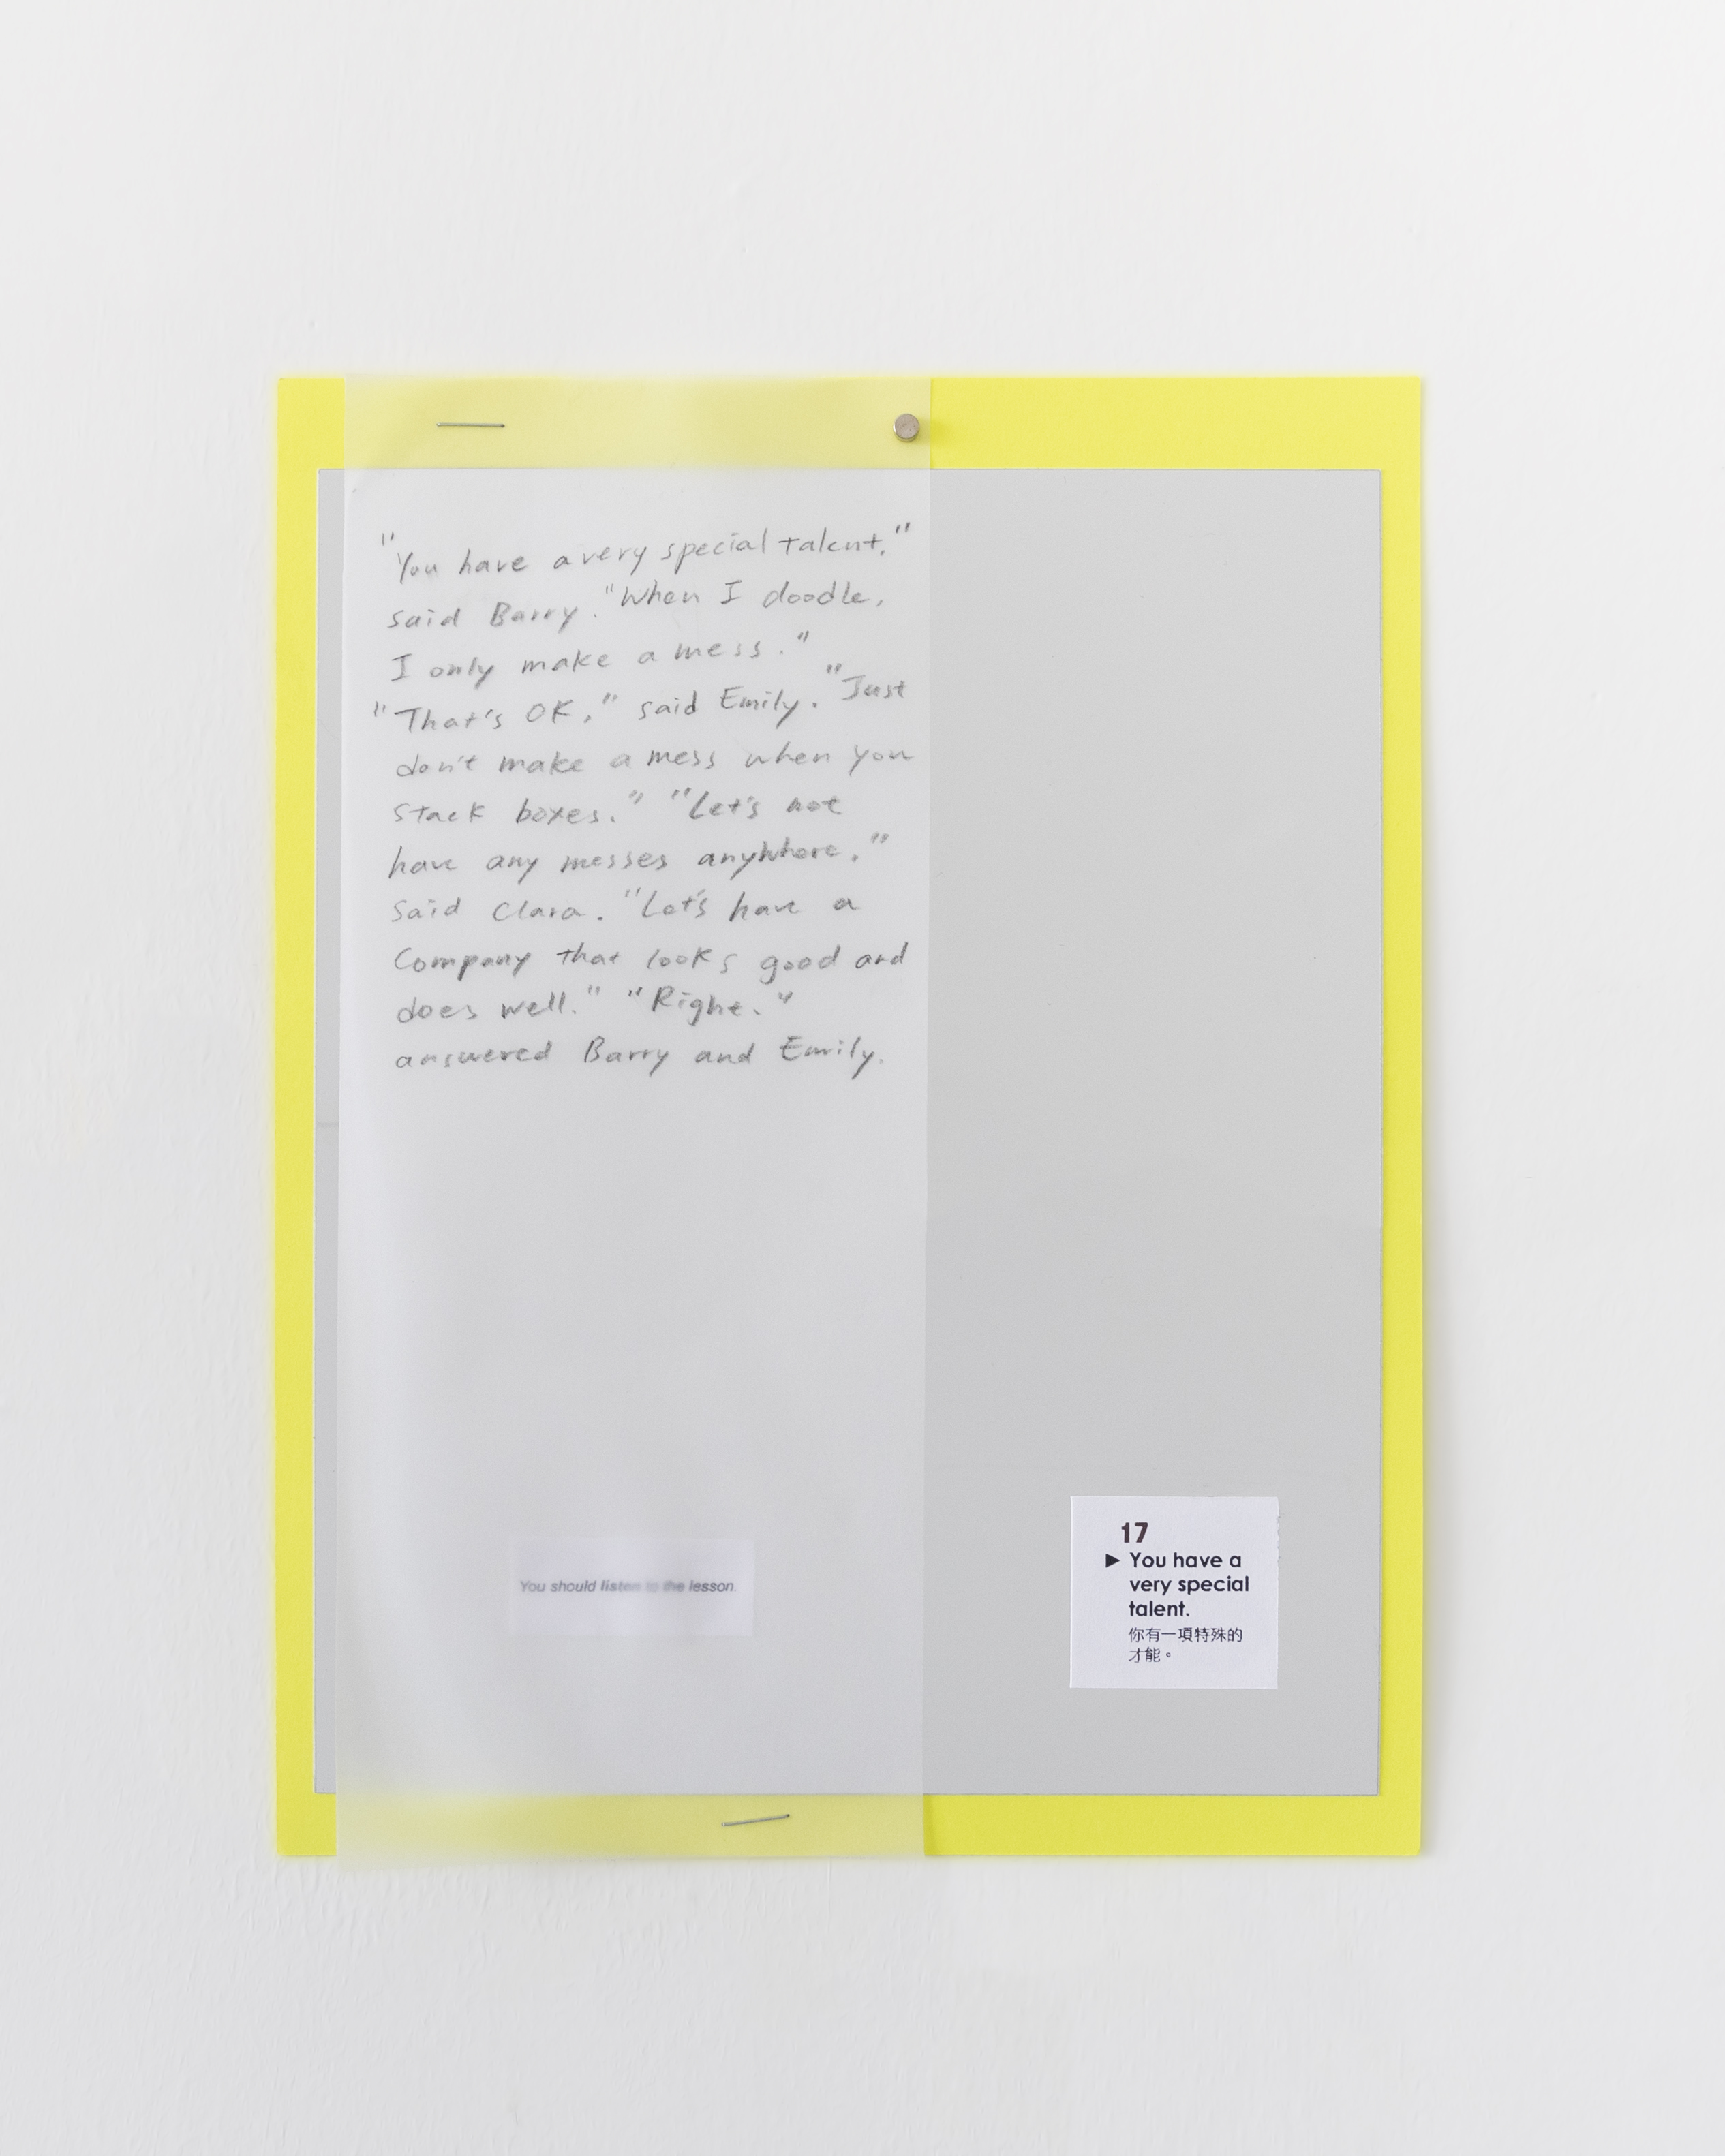 "You have a very special talent."
said Barry. "When I doodle,
I only make a mess."
"That's OK," said Emily. "Just
don't make a mess when you
stack boxes." "Let's not
have any messes anywhere."
said Clara. "Let's have a
Company that looks good and
does well." "Right."
answered Barry and Emily.
You should listen to the lesson.
17
▶ You have a
very special
talent.
你有一項特殊的
才能。